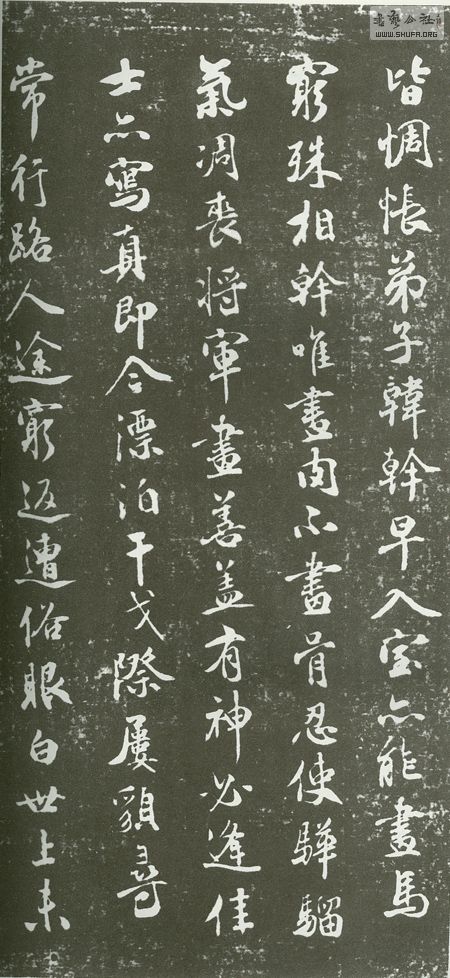 書藝公社
WWW.SHUFA.ORG
皆惆悵弟子韓幹早入室亦能畫馬
窮殊相幹唯畫肉不畫骨忍使驊騮
氣凋喪將軍畫善盖有神必逢佳
士亦寫真即今漂泊干戈際屢貌尋
常行路人途窮返遭俗眼白世上未